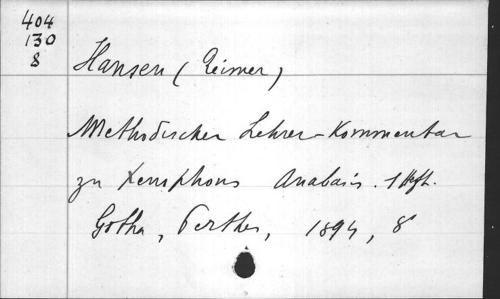 404
130
8
Hansen (Reimer)
Methodischer Lehrer-Kommentar
zu Xenophons Anabasis. 1 Heft.
Gotha, Perthes, 1894, 8°